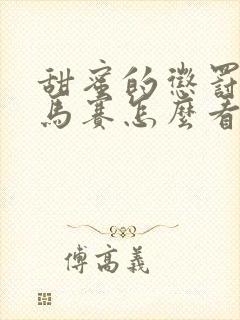 甜蜜的懲罰
馬賽怎麼看
傅高義